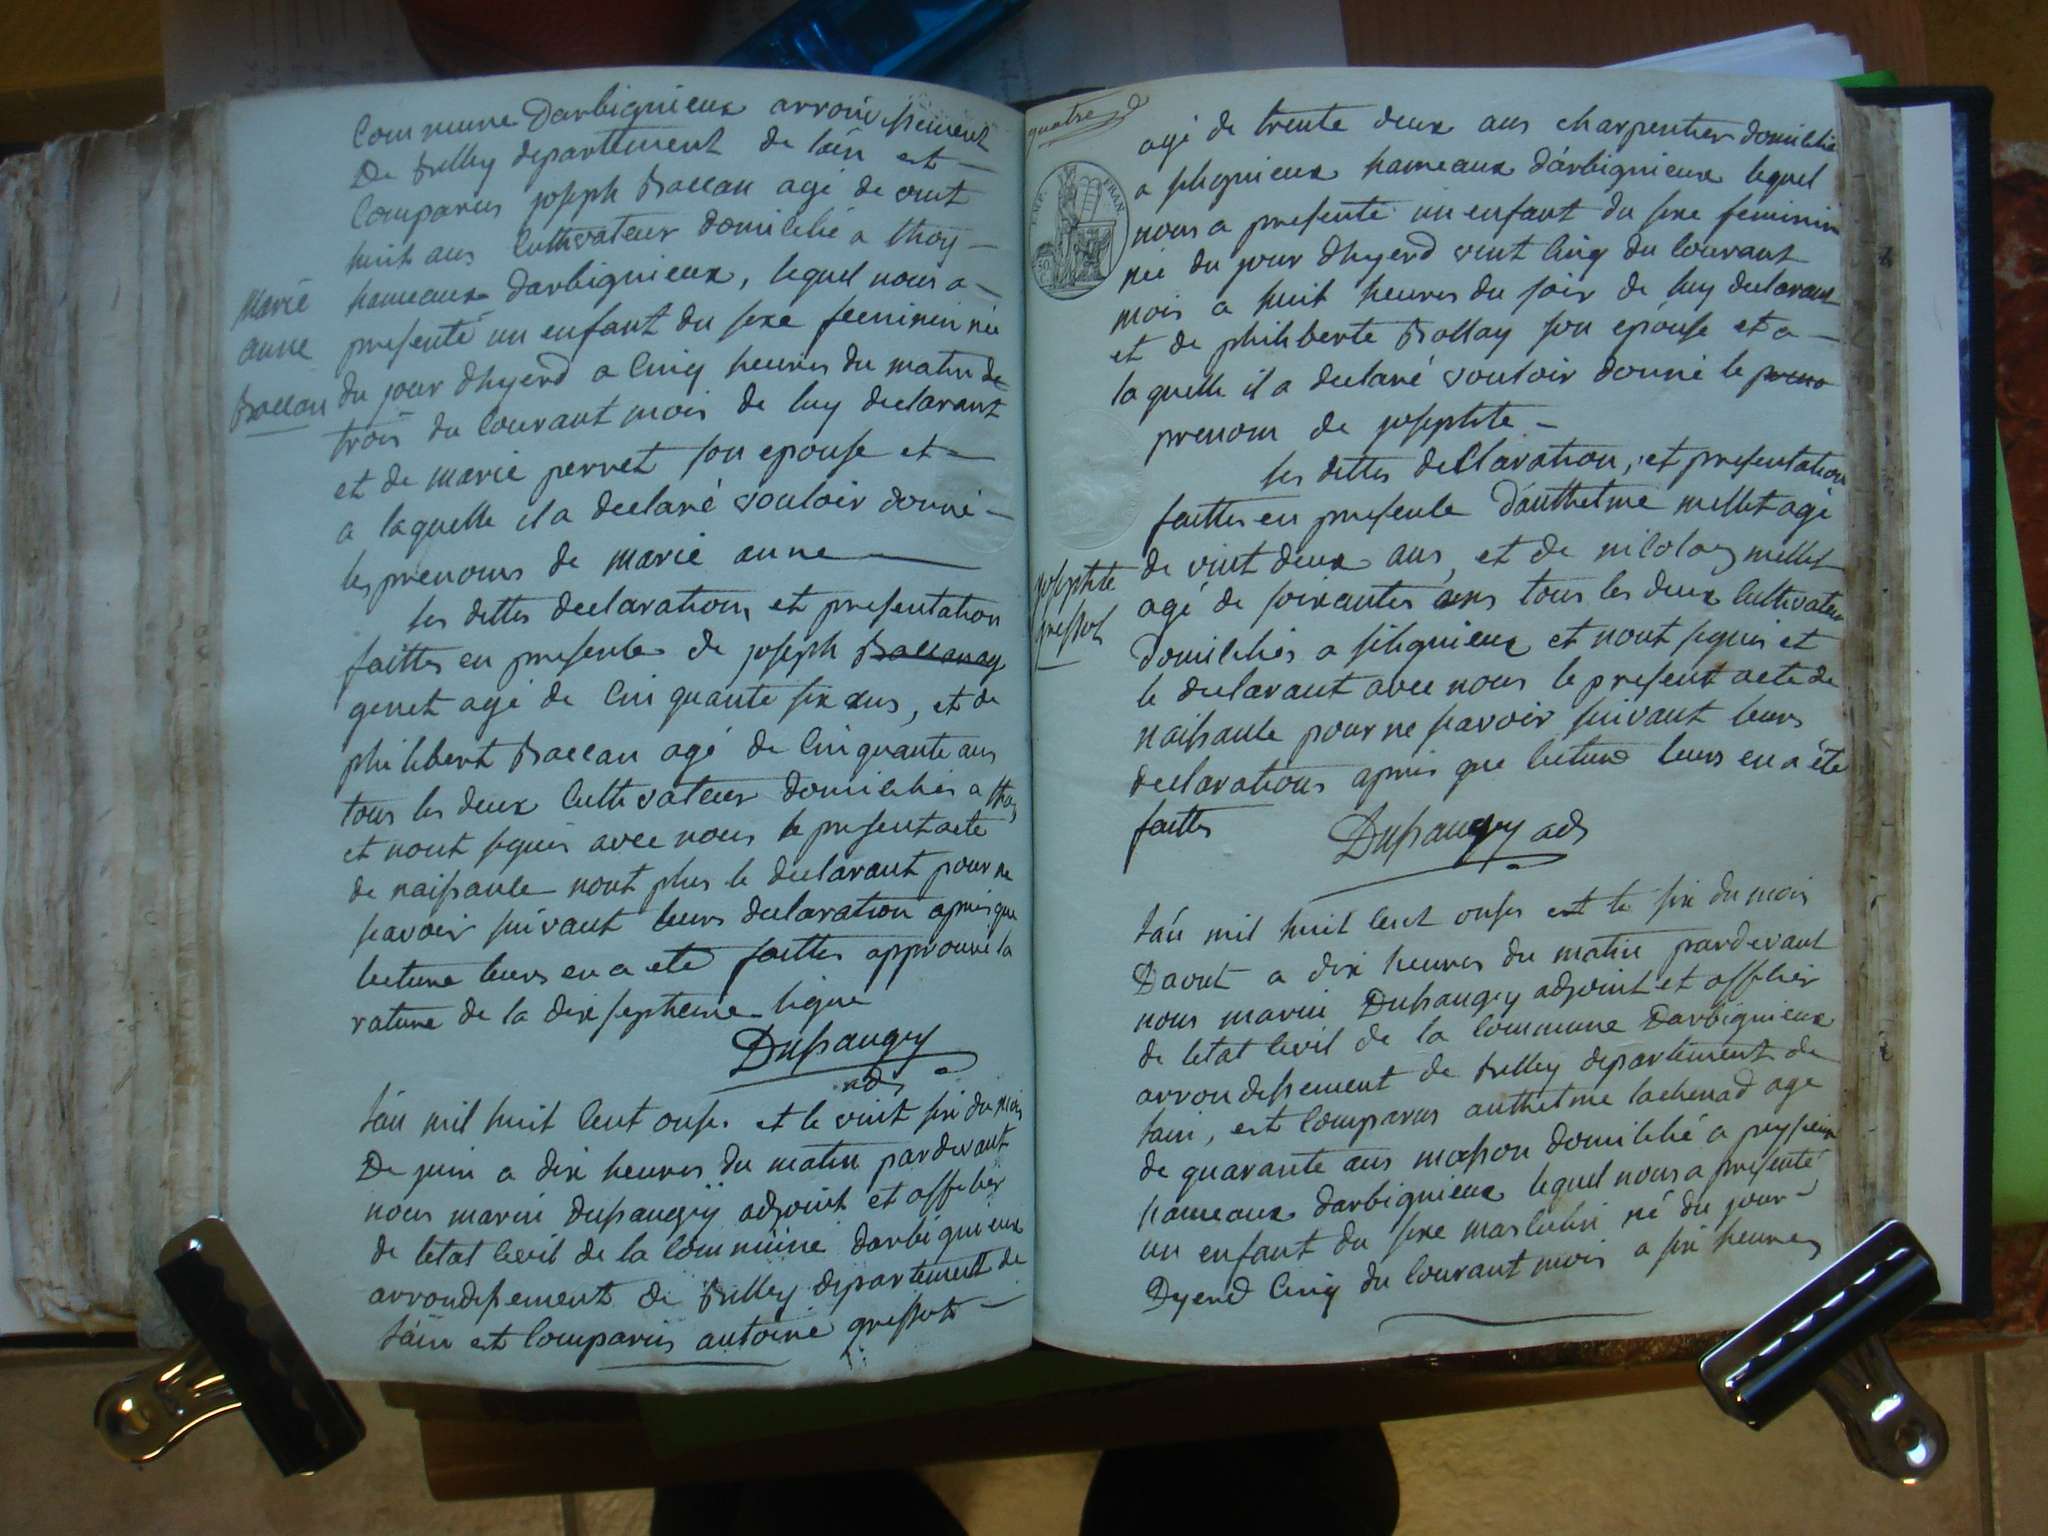 Commune Darbignieux arrondissement
De Belley departement de lain est
Comparus joseph Ballan agé de vint
huit ans Cultivateur domicilié a thoy
hameaux darbignieux, lequel nous a
presenté un enfant du sexe feminin née
du jour dhyerd a Cinq heures du matin de
trois du Courant mois de luy declarant
et de marie perret son epouse et
a laquelle il a declaré vouloir donné
les prenoms de marie anne
Marie
anne
Ballan
les dittes declarations et presentation
faittes en presence de joseph Ballanag
genet agé de Cinquante six ans, et de
philibert Ballan agé de Cinquante ans
tous les deux Cultivateur domiciliés a thoy
et nont signés avec nous le present acte
de naissance nont plus le declarant pour ne
savoir suivant leurs declaration apres que
lecture leurs en a eté faittes approuve la
rature de la dix septieme ligne
Dussaugey
adj
lán mil huit Cent onse et le vint six du mois
De juin a dix heures du matin pardevant
nous marin Dussaugey adjoint et officier
de letat Civil de la Commune darbignieux
arrondissement de Belley departement de
láin est Comparus antoine gressot
quatre
EMP. FRAN
agé de trente deux ans charpentier domicilié
a silignieux hameaux dárbignieux lequel
nous a presenté un enfant du sexe feminin
née du jour dhyerd vint Cinq du Courant
mois a huit heures du soir de luy declarant
et de philiberte Ballay son epouse et a
laquelle il a declaré vouloir donné le preno
prenom de josephte
les dittes declaration, et presentation
faittes en presence dánthelme mellet agé
de vint deux ans, et de nicolas mellet
agé de soixantes ans tous les deux Cultivateur
Domiciliés a silignieux et nont signés et
le declarant avec nous le present acte de
naissance pour ne savoir suivant leurs
declarations apres que lecture leurs en a été
faittes
josephte
gressot
Dussaugey adj
lán mil huit Cent onse et le six du mois
Daout a dix heures du matin pardevant
nous marin Dussaugey adjoint et officier
de letat Civil de la Commune Darbignieux
arrondissement de Belley departement de
lain, est Comparus anthelme lachenad agé
de quarante ans masson domicilié a peyzieu
hameaux darbignieux lequel nous a presenté
un enfant du sexe masculin né du jour
Dyerd Cinq du Courant mois a six heures